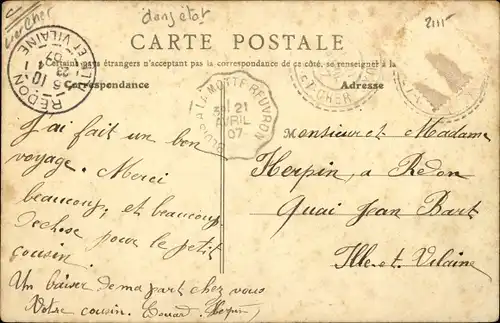 dans etat
2111-
CARTE POSTALE
Certains pays étrangers n'acceptant pas la correspondance de ce côté, se renseigner à la
Correspondance
Adresse
REDON
ILLE ET VILAINE
BLOIS A LA MOTTE-BEUVRON
21
AVRIL
07
CHER
J'ai fait un bon
voyage. Merci
beaucoup, et beaucoup
de chose pour le petit
cousin.
Un baiser de ma part chez vous
Votre cousin. Edouard Herpin
Monsieur et Madame
Herpin, a Redon
Quai Jean Bart
Ille-et-Vilaine